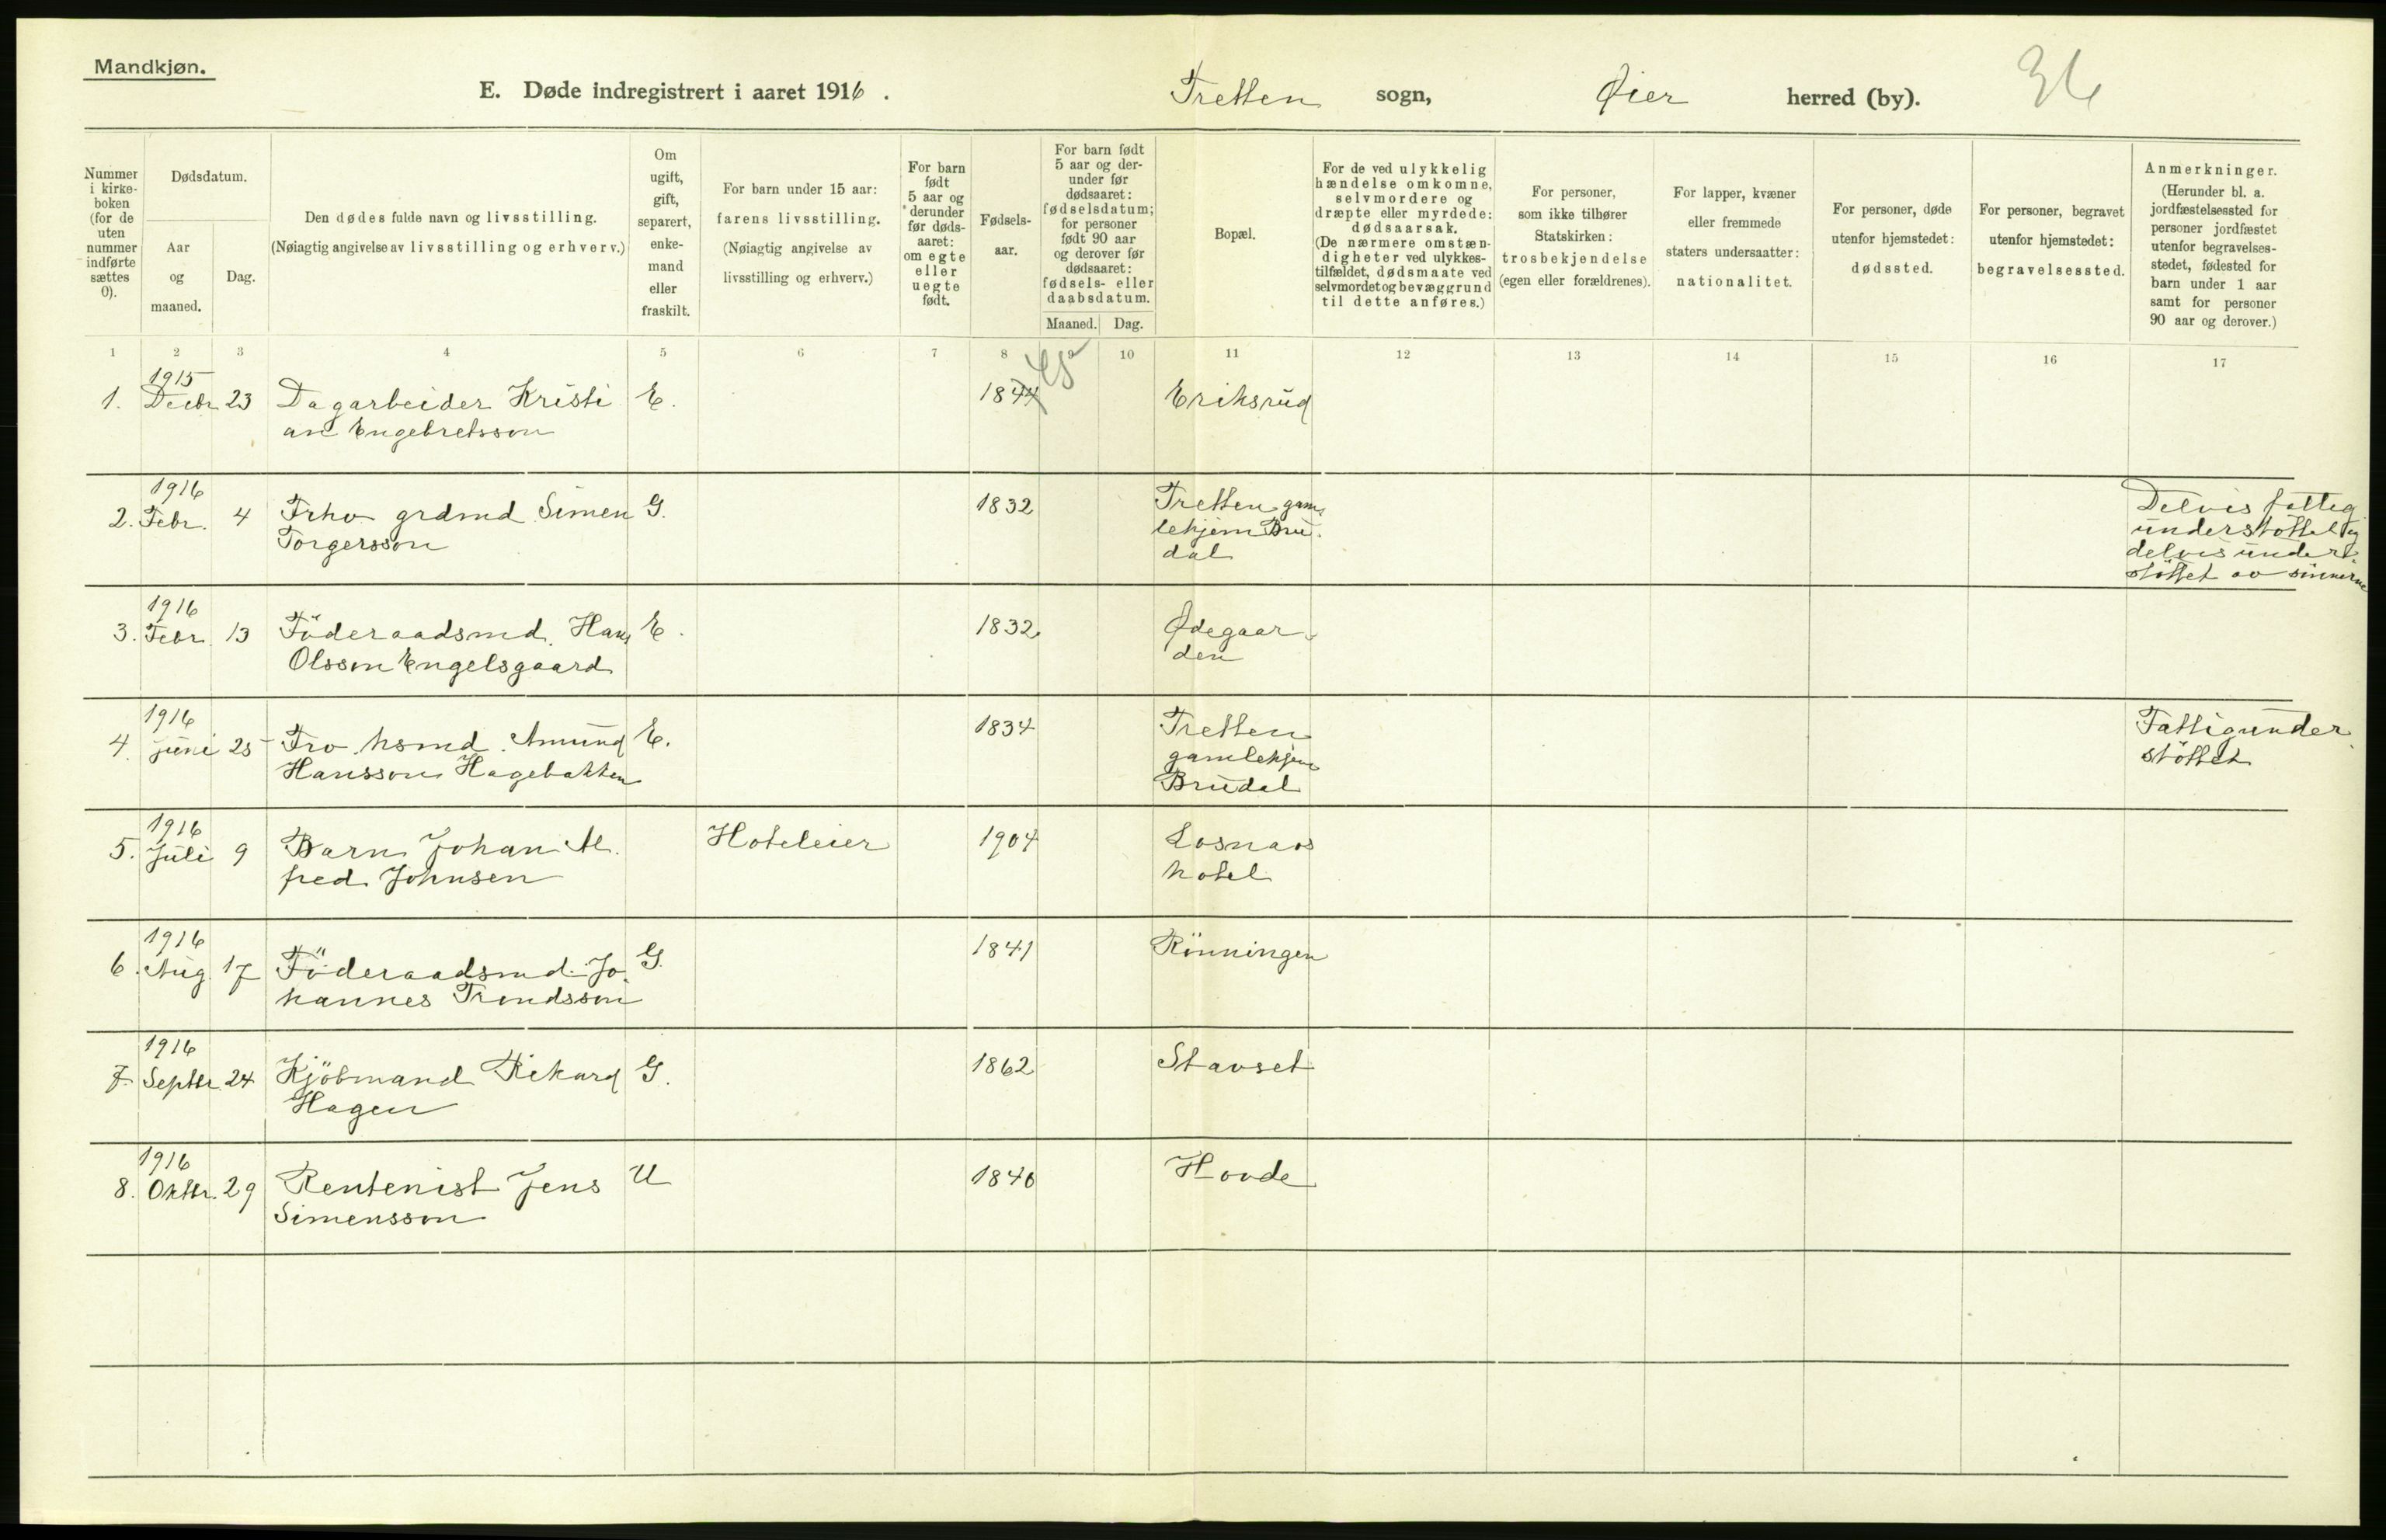 Mandkjøn.
E. Døde indregistrert i aaret 1916.
Tretten sogn, Øier herred (by).
36
Nummer i kirkeboken (for de uten nummer indførte sættes 0).
Dødsdatum.
Aar og maaned.
Dag.
Den dødes fulde navn og livsstilling.
(Nøiagtig angivelse av livsstilling og erhverv.)
Om ugift, gift, separert, enkemand eller fraskilt.
For barn under 15 aar:
farens livsstilling.
(Nøiagtig angivelse av
livsstilling og erhverv.)
For barn født 5 aar og derunder før dødsaaret: om egte eller uegte født.
Fødselsaar.
For barn født 5 aar og derunder før dødsaaret: fødselsdatum; for personer født 90 aar og derover før dødsaaret: fødsels- eller daabsdatum.
Maaned. Dag.
Bopæl.
For de ved ulykkelig hændelse omkomne, selvmordere og dræpte eller myrdede: dødsaarsak.
(De nærmere omstændigheter ved ulykkestilfældet, dødsmaate ved selvmordet og bevæggrund til dette anføres.)
For personer, som ikke tilhører Statskirken: trosbekjendelse (egen eller forældrenes).
For lapper, kvæner eller fremmede staters undersaatter: nationalitet.
For personer, døde utenfor hjemstedet: dødssted.
For personer, begravet utenfor hjemstedet: begravelsessted.
Anmerkninger.
(Herunder bl. a. jordfæstelsessted for personer jordfæstet utenfor begravelsesstedet, fødested for barn under 1 aar samt for personer 90 aar og derover.)
1 2 3 4 5 6 7 8 9 10 11 12 13 14 15 16 17
1915
1. Decbr 23 Dagarbeider Kristi E. 1844 45 Eriksrud
an Engebretsson
1916
2. Febr. 4 Frhv grdmd Simen G. 1832 Tretten gam
Torgersson lehjem Bru
dal
Delvis fattig
understöttet og
delvis under
stöttet av sönnerne
1916
3. Febr. 13 Föderaadsmd. Hans E. 1832 Ødegaar
Olsson Engelsgaard den
1916
4. juni 25 Frv. hsmd. Amund E. 1834 Tretten Fattigunder
Hansson Hagebakken gamlehjem stöttet
Brudal
1916
5. Juli 9 Barn Johan Al Hoteleier 1904 Losnaos
fred Johnsen hotel
1916
6. Aug. 17 Föderaadsmd. Jo G. 1841 Rönningen
hannes Trondsson
1916
7 Septbr. 24 Kjöbmand Rikard G. 1862 Stavset
Hagen
1916
8. Oktbr. 29 Rentenist Jens U 1840 Hovde
Simensson